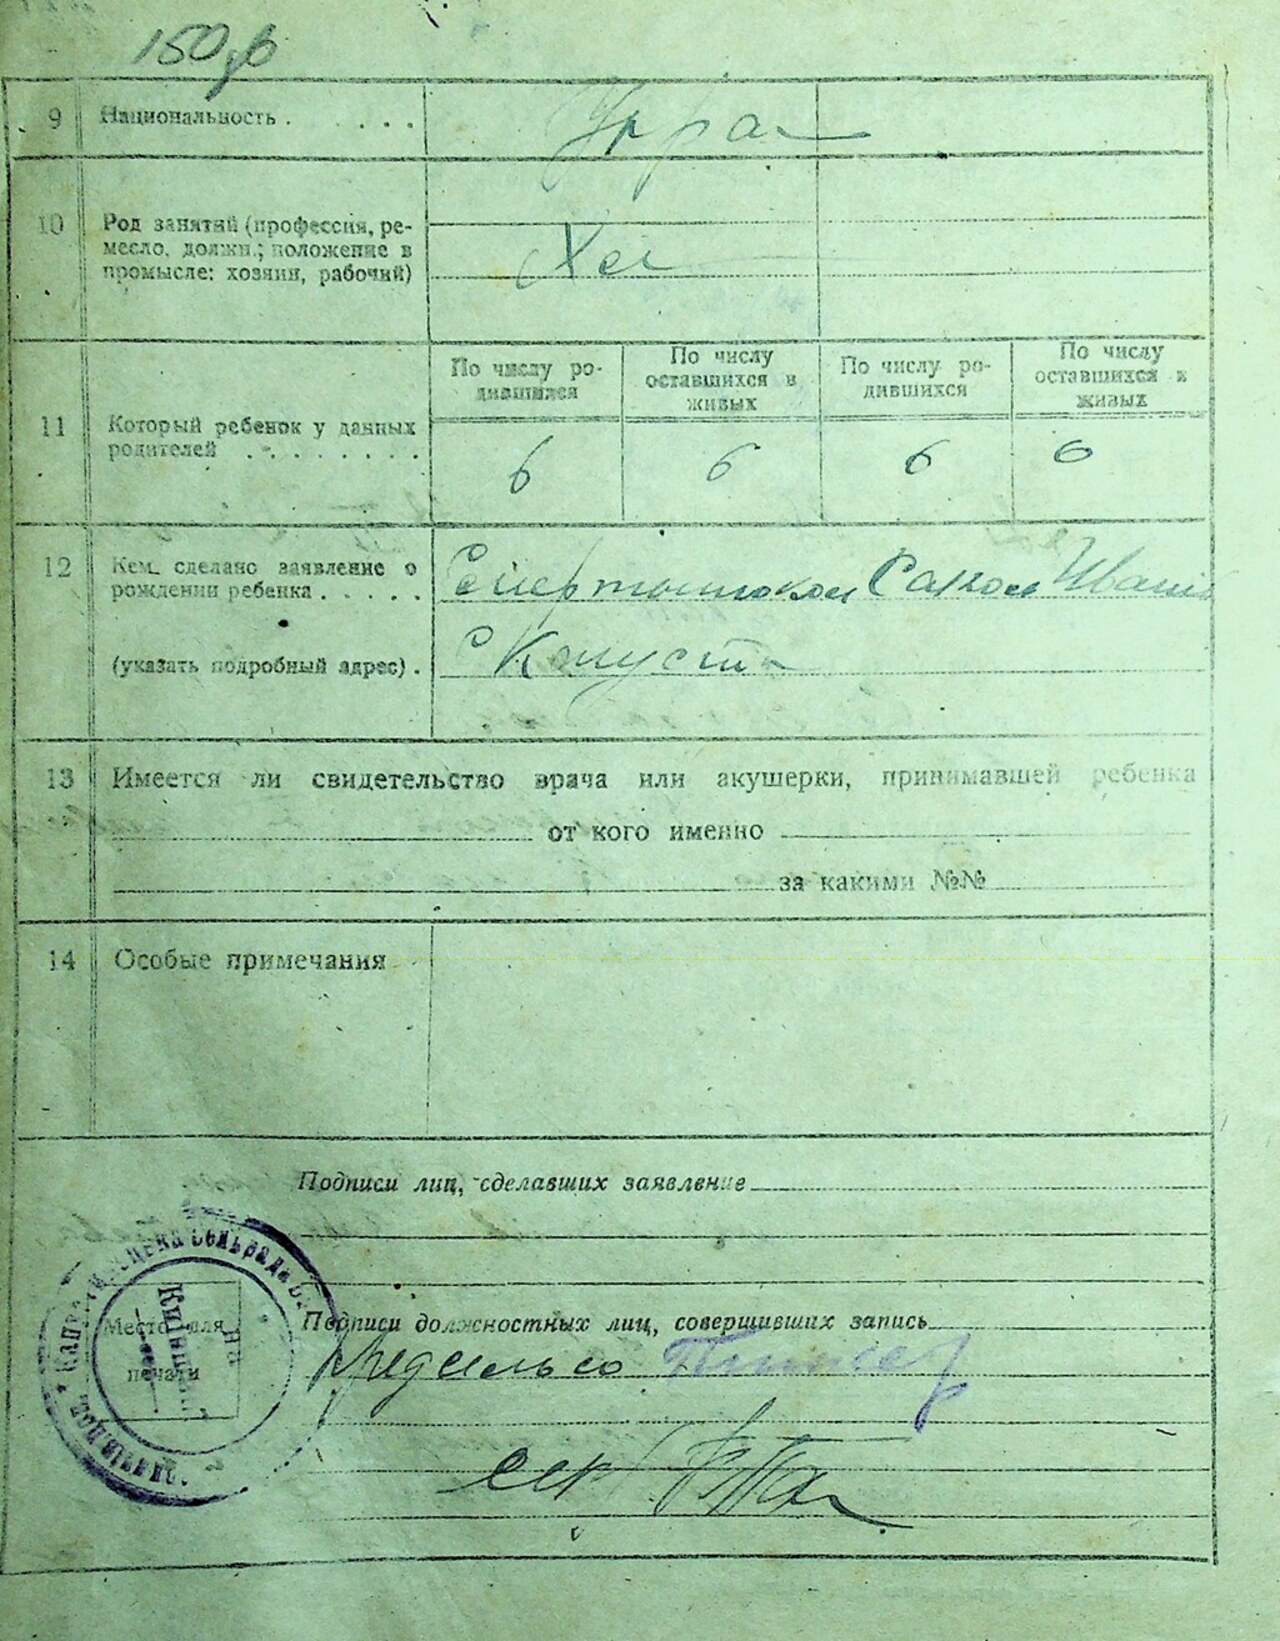 150зв
9 Национальность . . . . .
Укра
10 Род занятий (профессия, ре-
месло, должн.; положение в
промысле: хозяин, рабочий)
По числу ро-
дившихся
По числу
оставшихся в
живых
По числу ро-
дившихся
По числу
оставшихся в
живых
11 Который ребенок у данных
родителей . . . . . . . .
6 6 6 6
12 Кем сделано заявление о
рождении ребенка . . . . .
Иван
(указать подробный адрес) .
С Капуста
13 Имеется ли свидетельство врача или акушерки, принимавшей ребенка
от кого именно
за какими №№
14 Особые примечания
Подписи лиц, сделавших заявление
Подписи должностных лиц, совершивших запись
Место для
печати
Предсельсо
сек